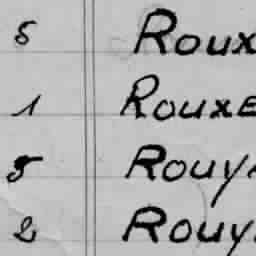 5 ROUX
1 ROUXE
5 ROUY
2 ROUY